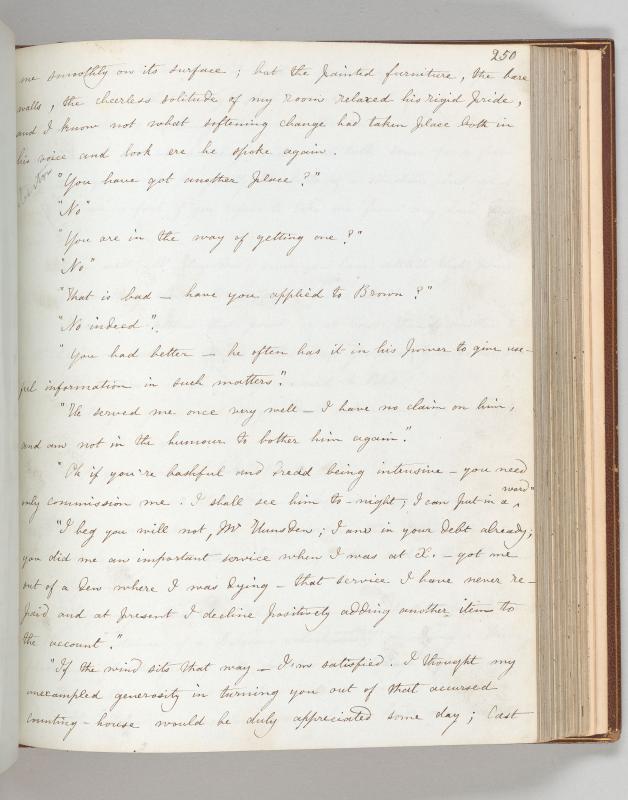 250
me smoothly on its surface; but the painted furniture, the bare
walls, the cheerless solitude of my room relaxed his rigid pride,
and I know not what softening change had taken place both in
his voice and look ere he spoke again.
"You have got another place?"
"No"
"You are in the way of getting one?"
"No"
"That is bad – have you applied to Brown?"
"No indeed".
"You had better – he often has it in his power to give use-
ful information in such matters".
"He served me once very well – I have no claim on him,
and am not in the humour to bother him again."
"Oh if you're bashful and dread being intrusive – you need
only commission me. I shall see him to-night; I can put in a word"
"I beg you will not, Mr Hunsden; I am in your debt already;
you did me an important service when I was at X. – got me
out of a den where I was dying – that service I have never re-
paid and at present I decline positively adding another item to
the account."
"If the wind sits that way – I'm satisfied. I thought my
unexampled generosity in turning you out of that accursed
counting-house would be duly appreciated some day; Cast